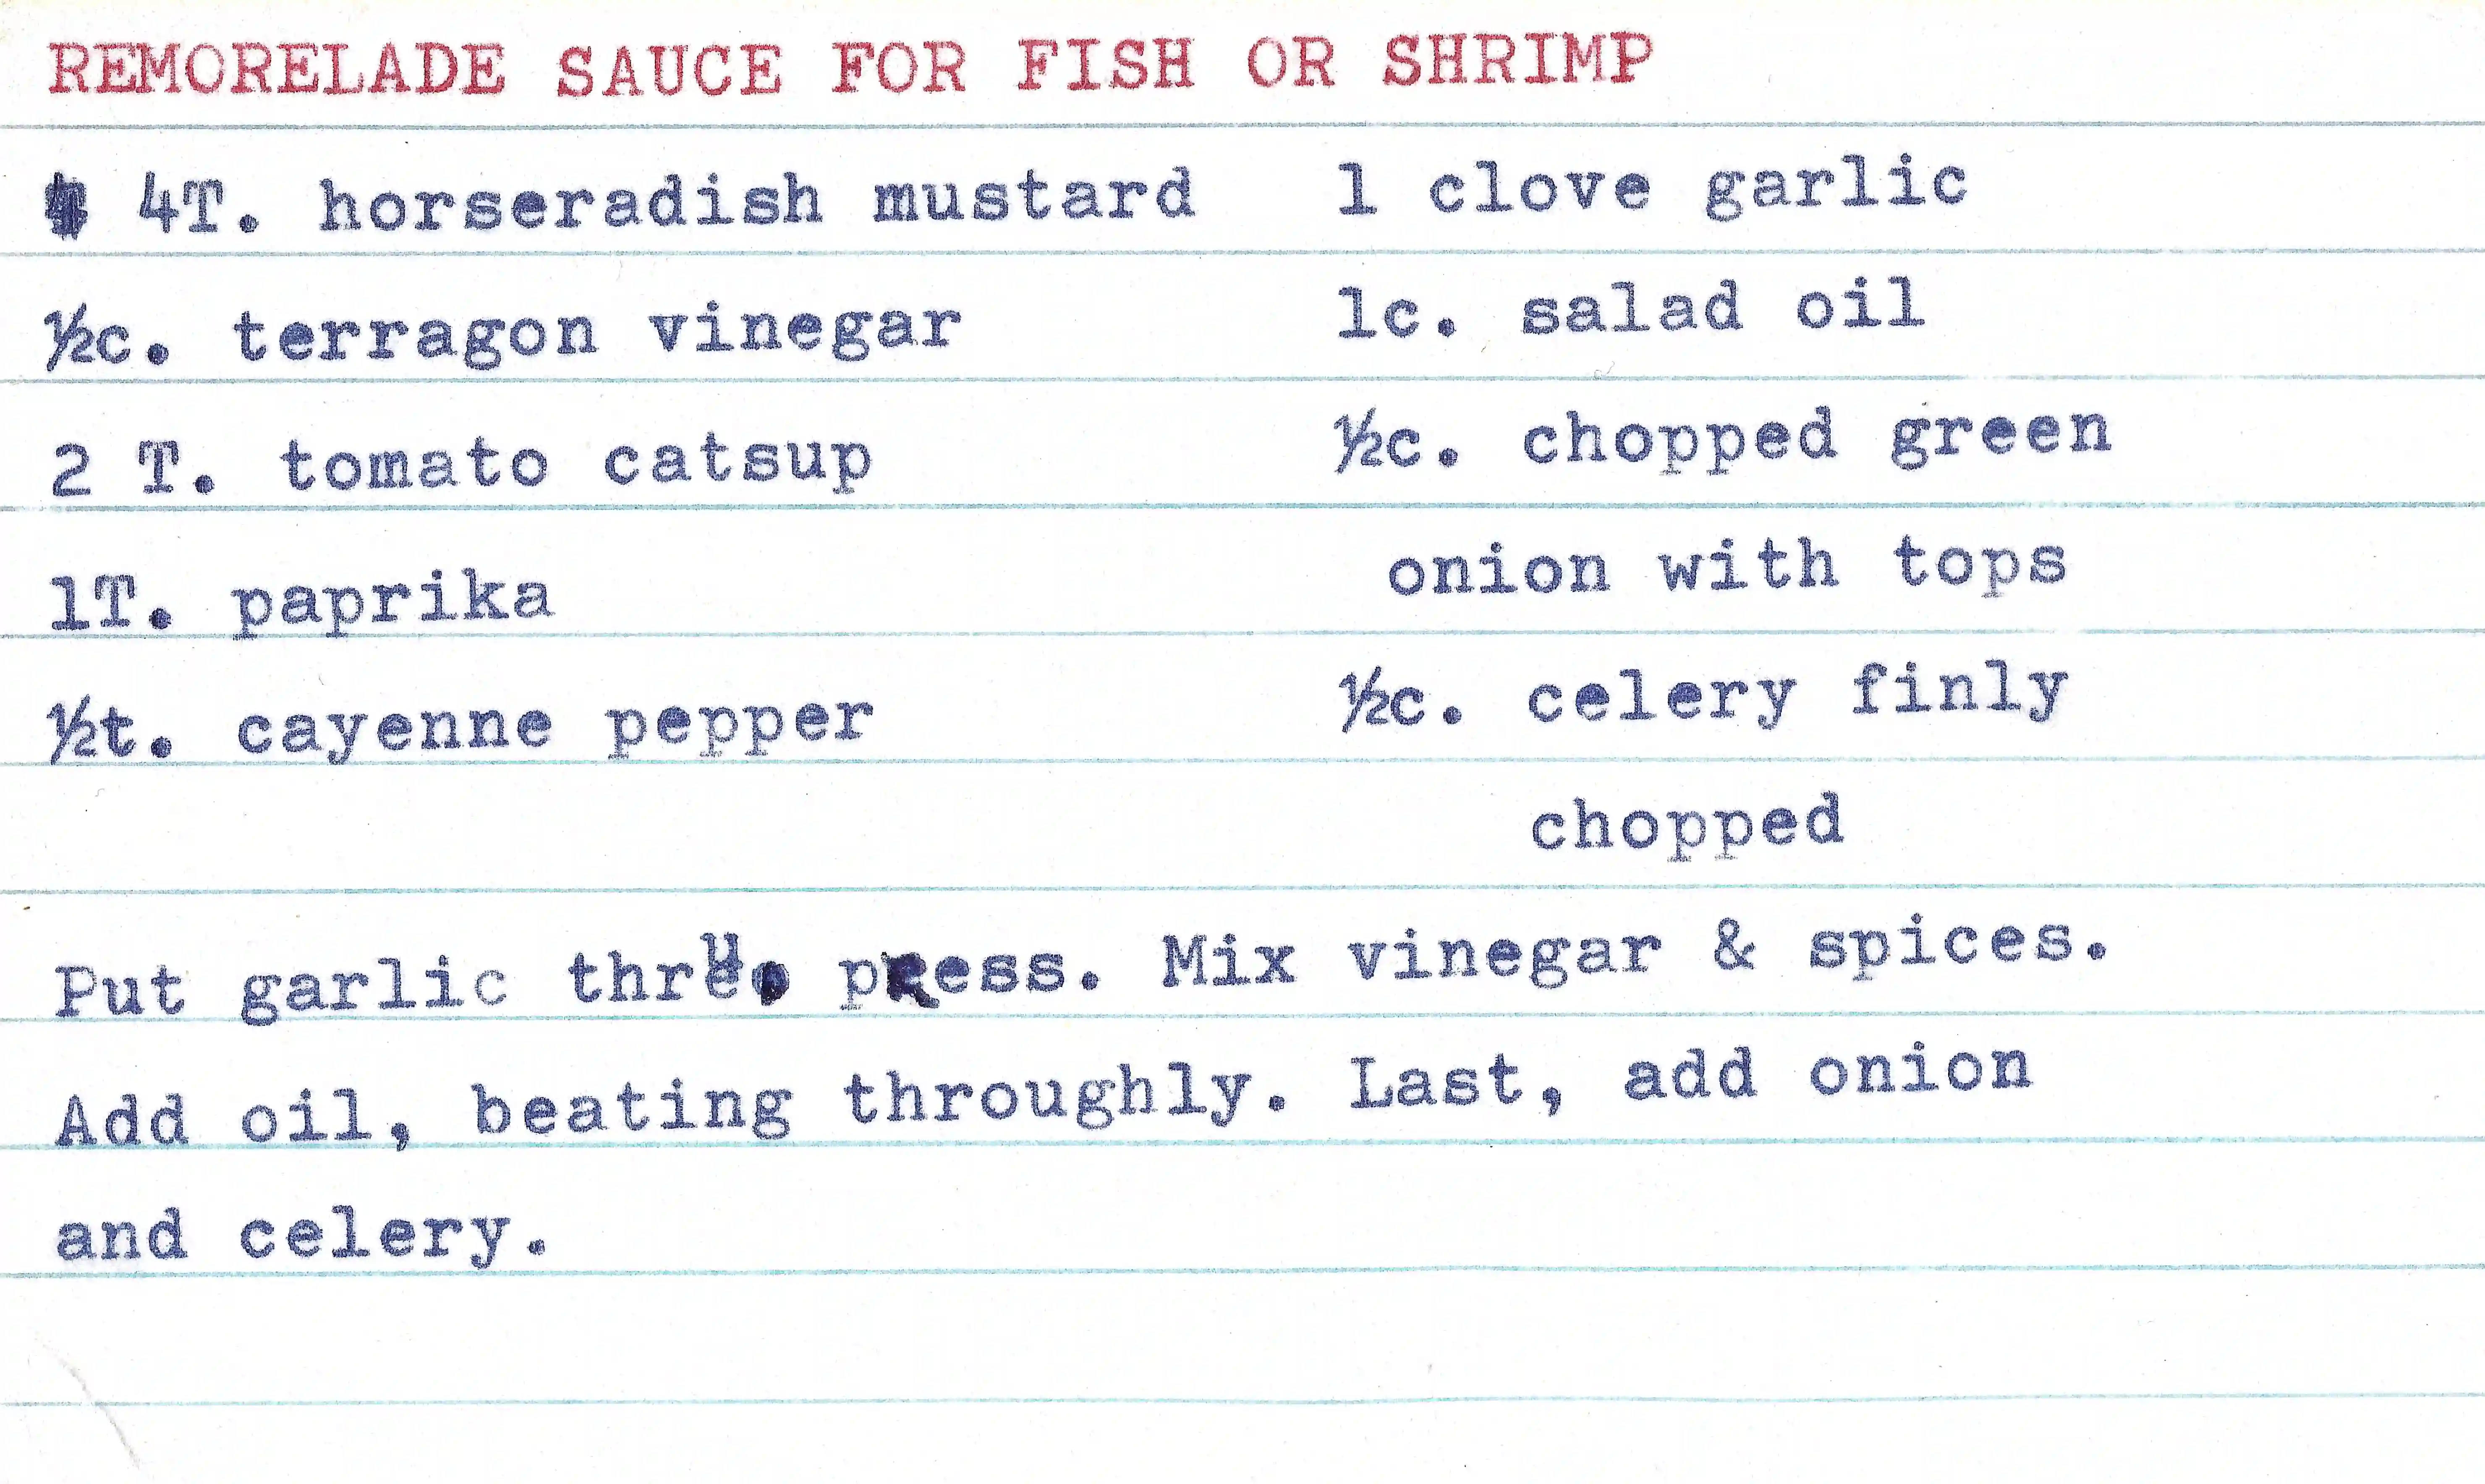 REMORELADE SAUCE FOR FISH OR SHRIMP
4T. horseradish mustard
½c. terragon vinegar
2 T. tomato catsup
1T. paprika
½t. cayenne pepper
1 clove garlic
1c. salad oil
½c. chopped green
onion with tops
½c. celery finly
chopped
Put garlic thru press. Mix vinegar & spices.
Add oil, beating throughly. Last, add onion
and celery.